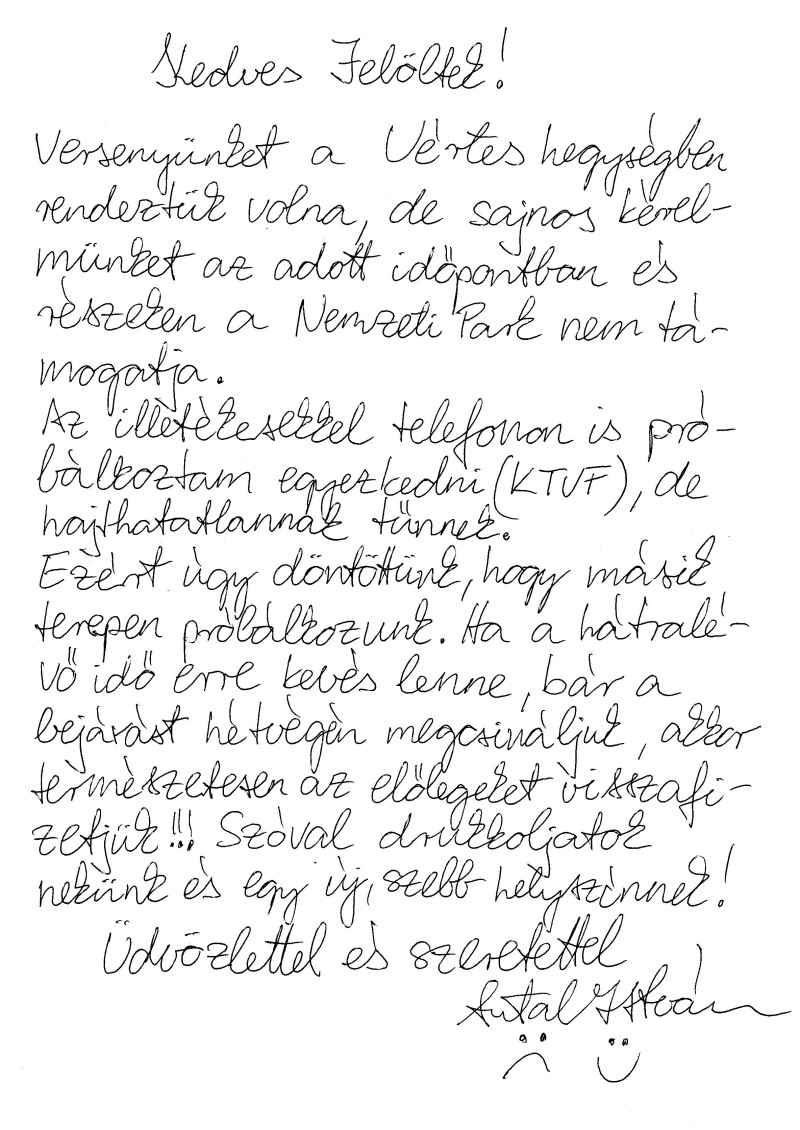 Kedves Jelöltek!
Versenyünket a Vértes hegységben
rendeztük volna, de sajnos kérel-
münket az adott időpontban és
részeken a Nemzeti Park nem tá-
mogatja.
Az illetékesekkel telefonon is pró-
bálkoztam egyezkedni (KTVF), de
hajthatatlannak tűnnek.
Ezért úgy döntöttünk, hogy másik
terepen próbálkozunk. Ha a hátralé-
vő idő erre kevés lenne, bár a
bejárást hétvégén megcsináljuk, akkor
természetesen az előlegeket visszafi-
zetjük!!! Szóval drukkoljatok
nekünk és egy új, szebb helyszínnek!
Üdvözlettel és szeretettel
Antal István